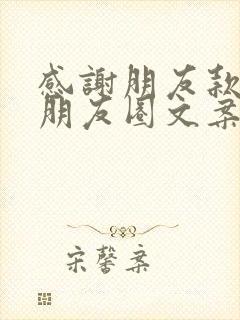 感謝朋友款
朋友圈文案
宋馨案